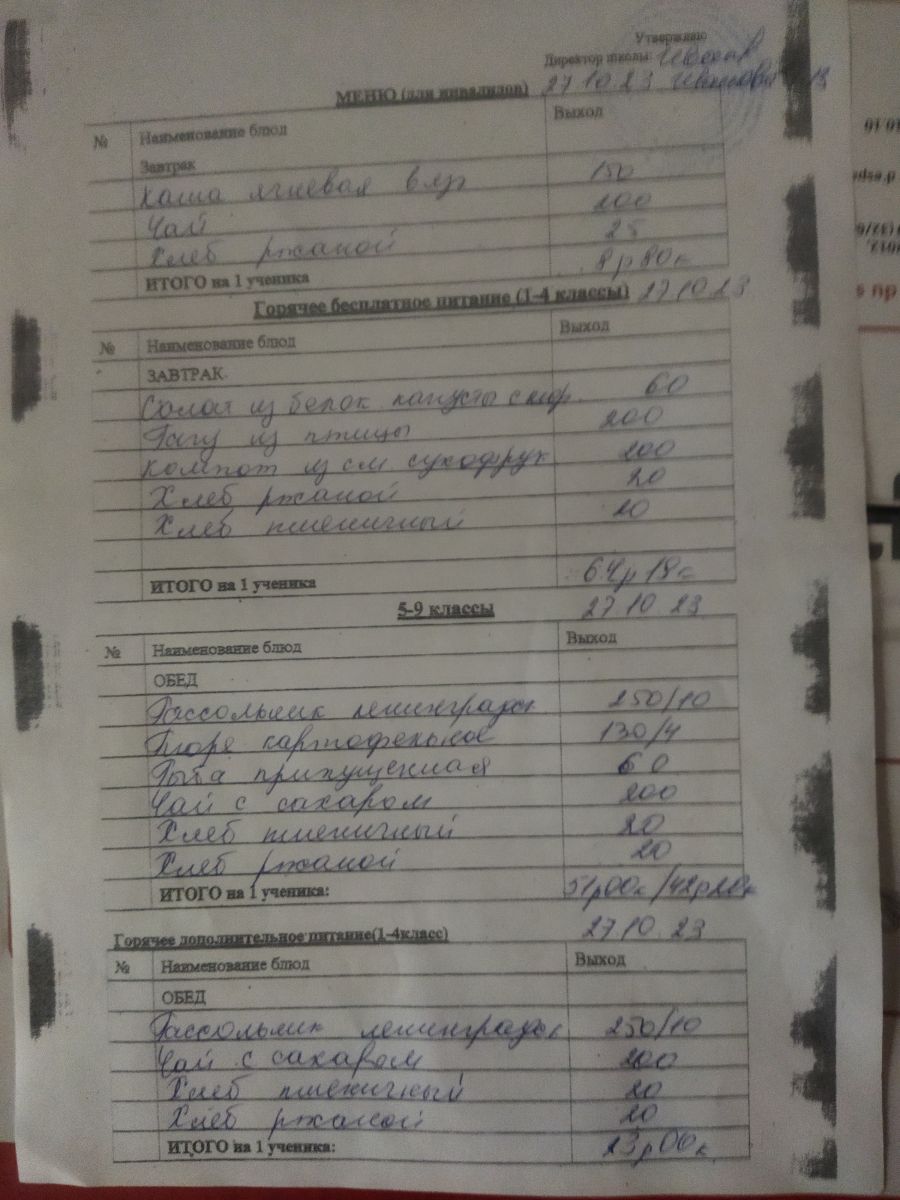 Утверждаю
Директор школы:
МЕНЮ (для инвалидов) 27.10.23
№ Наименование блюд Выход
Завтрак
Каша ячневая вяз 150
Чай 200
Хлеб ржаной 25
ИТОГО на 1 ученика 8р80к
Горячее бесплатное питание (1-4 классы) 27.10.23
№ Наименование блюд Выход
ЗАВТРАК
Салат из белок. капусты с мор. 60
Рагу из птицы 200
Компот из см. сухофрук 200
Хлеб ржаной 20
Хлеб пшеничный 20
ИТОГО на 1 ученика 64р18к
5-9 классы 27.10.23
№ Наименование блюд Выход
ОБЕД
Рассольник ленинградск 250/10
Пюре картофельное 130/4
Рыба припущенная 60
Чай с сахаром 200
Хлеб пшеничный 20
Хлеб ржаной 20
ИТОГО на 1 ученика: 51р00к/42р20к
Горячее дополнительное питание(1-4класс) 27.10.23
№ Наименование блюд Выход
ОБЕД
Рассольник ленинградск 250/10
Чай с сахаром 200
Хлеб пшеничный 20
Хлеб ржаной 20
ИТОГО на 1 ученика: 23р00к